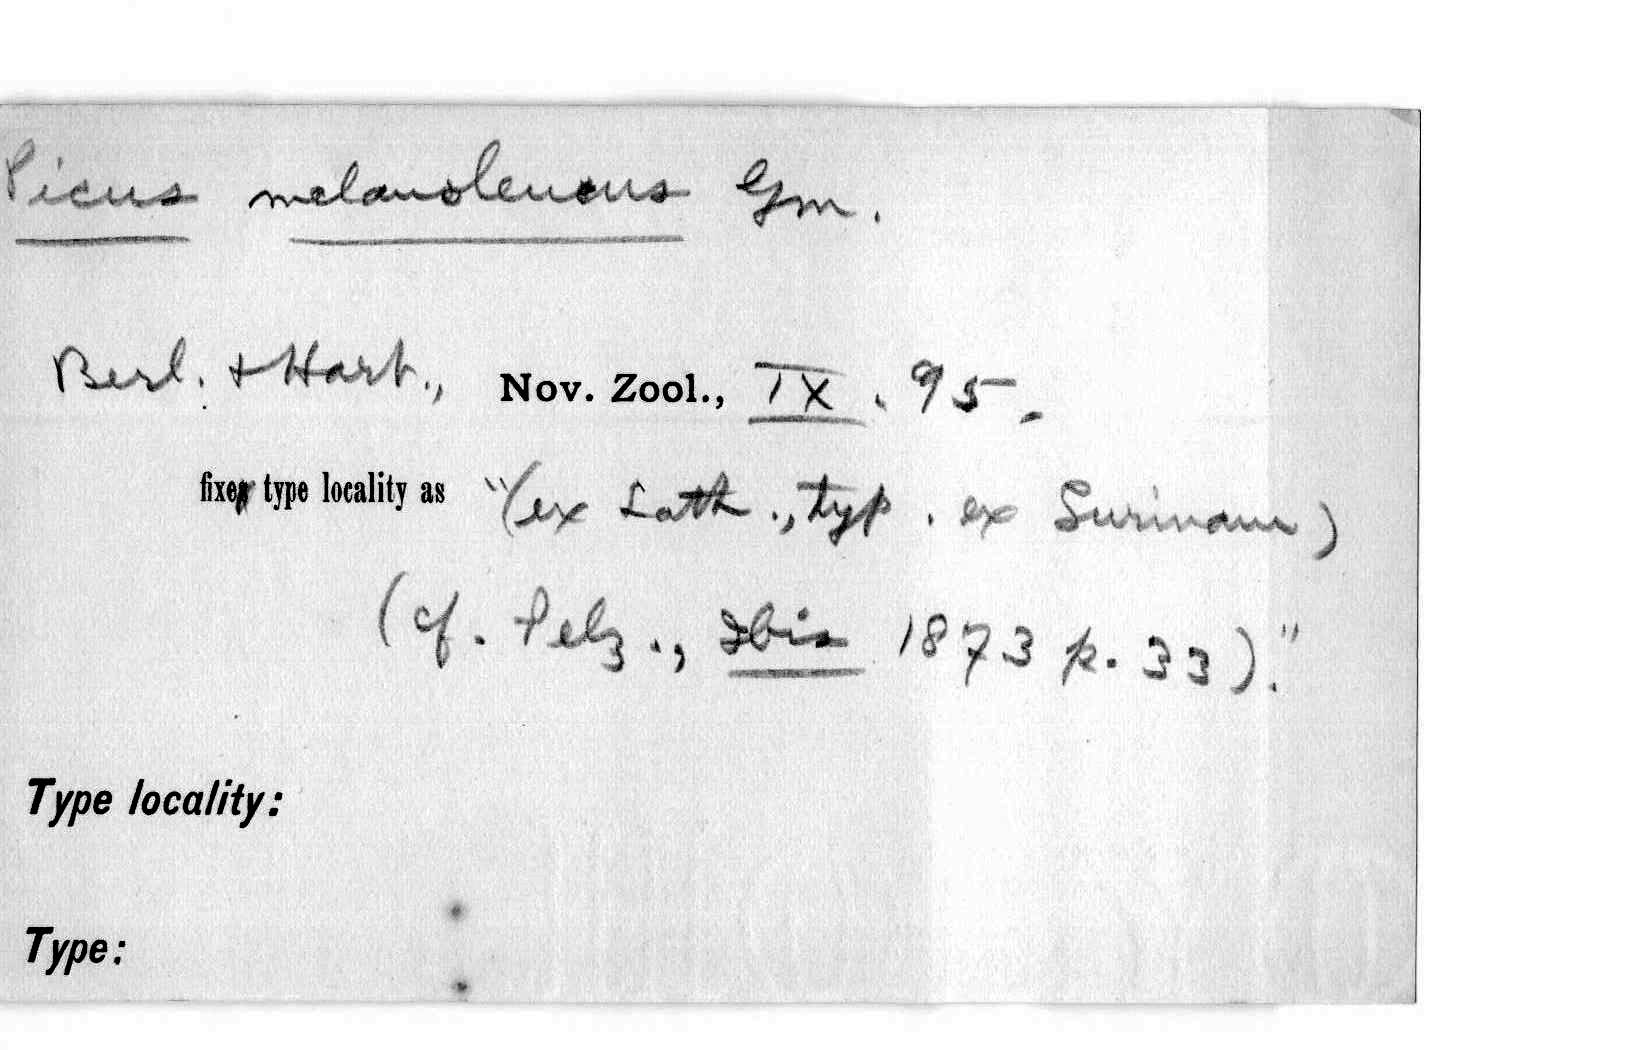 Picus melanoleucus Gm.
Berl. + Hart., Nov. Zool., IX. 95.
fixes type locality as "(ex Lath., typ. ex Surinam)
(cf. Pelz., Ibis 1873 p. 33)."
Type locality:
Type: